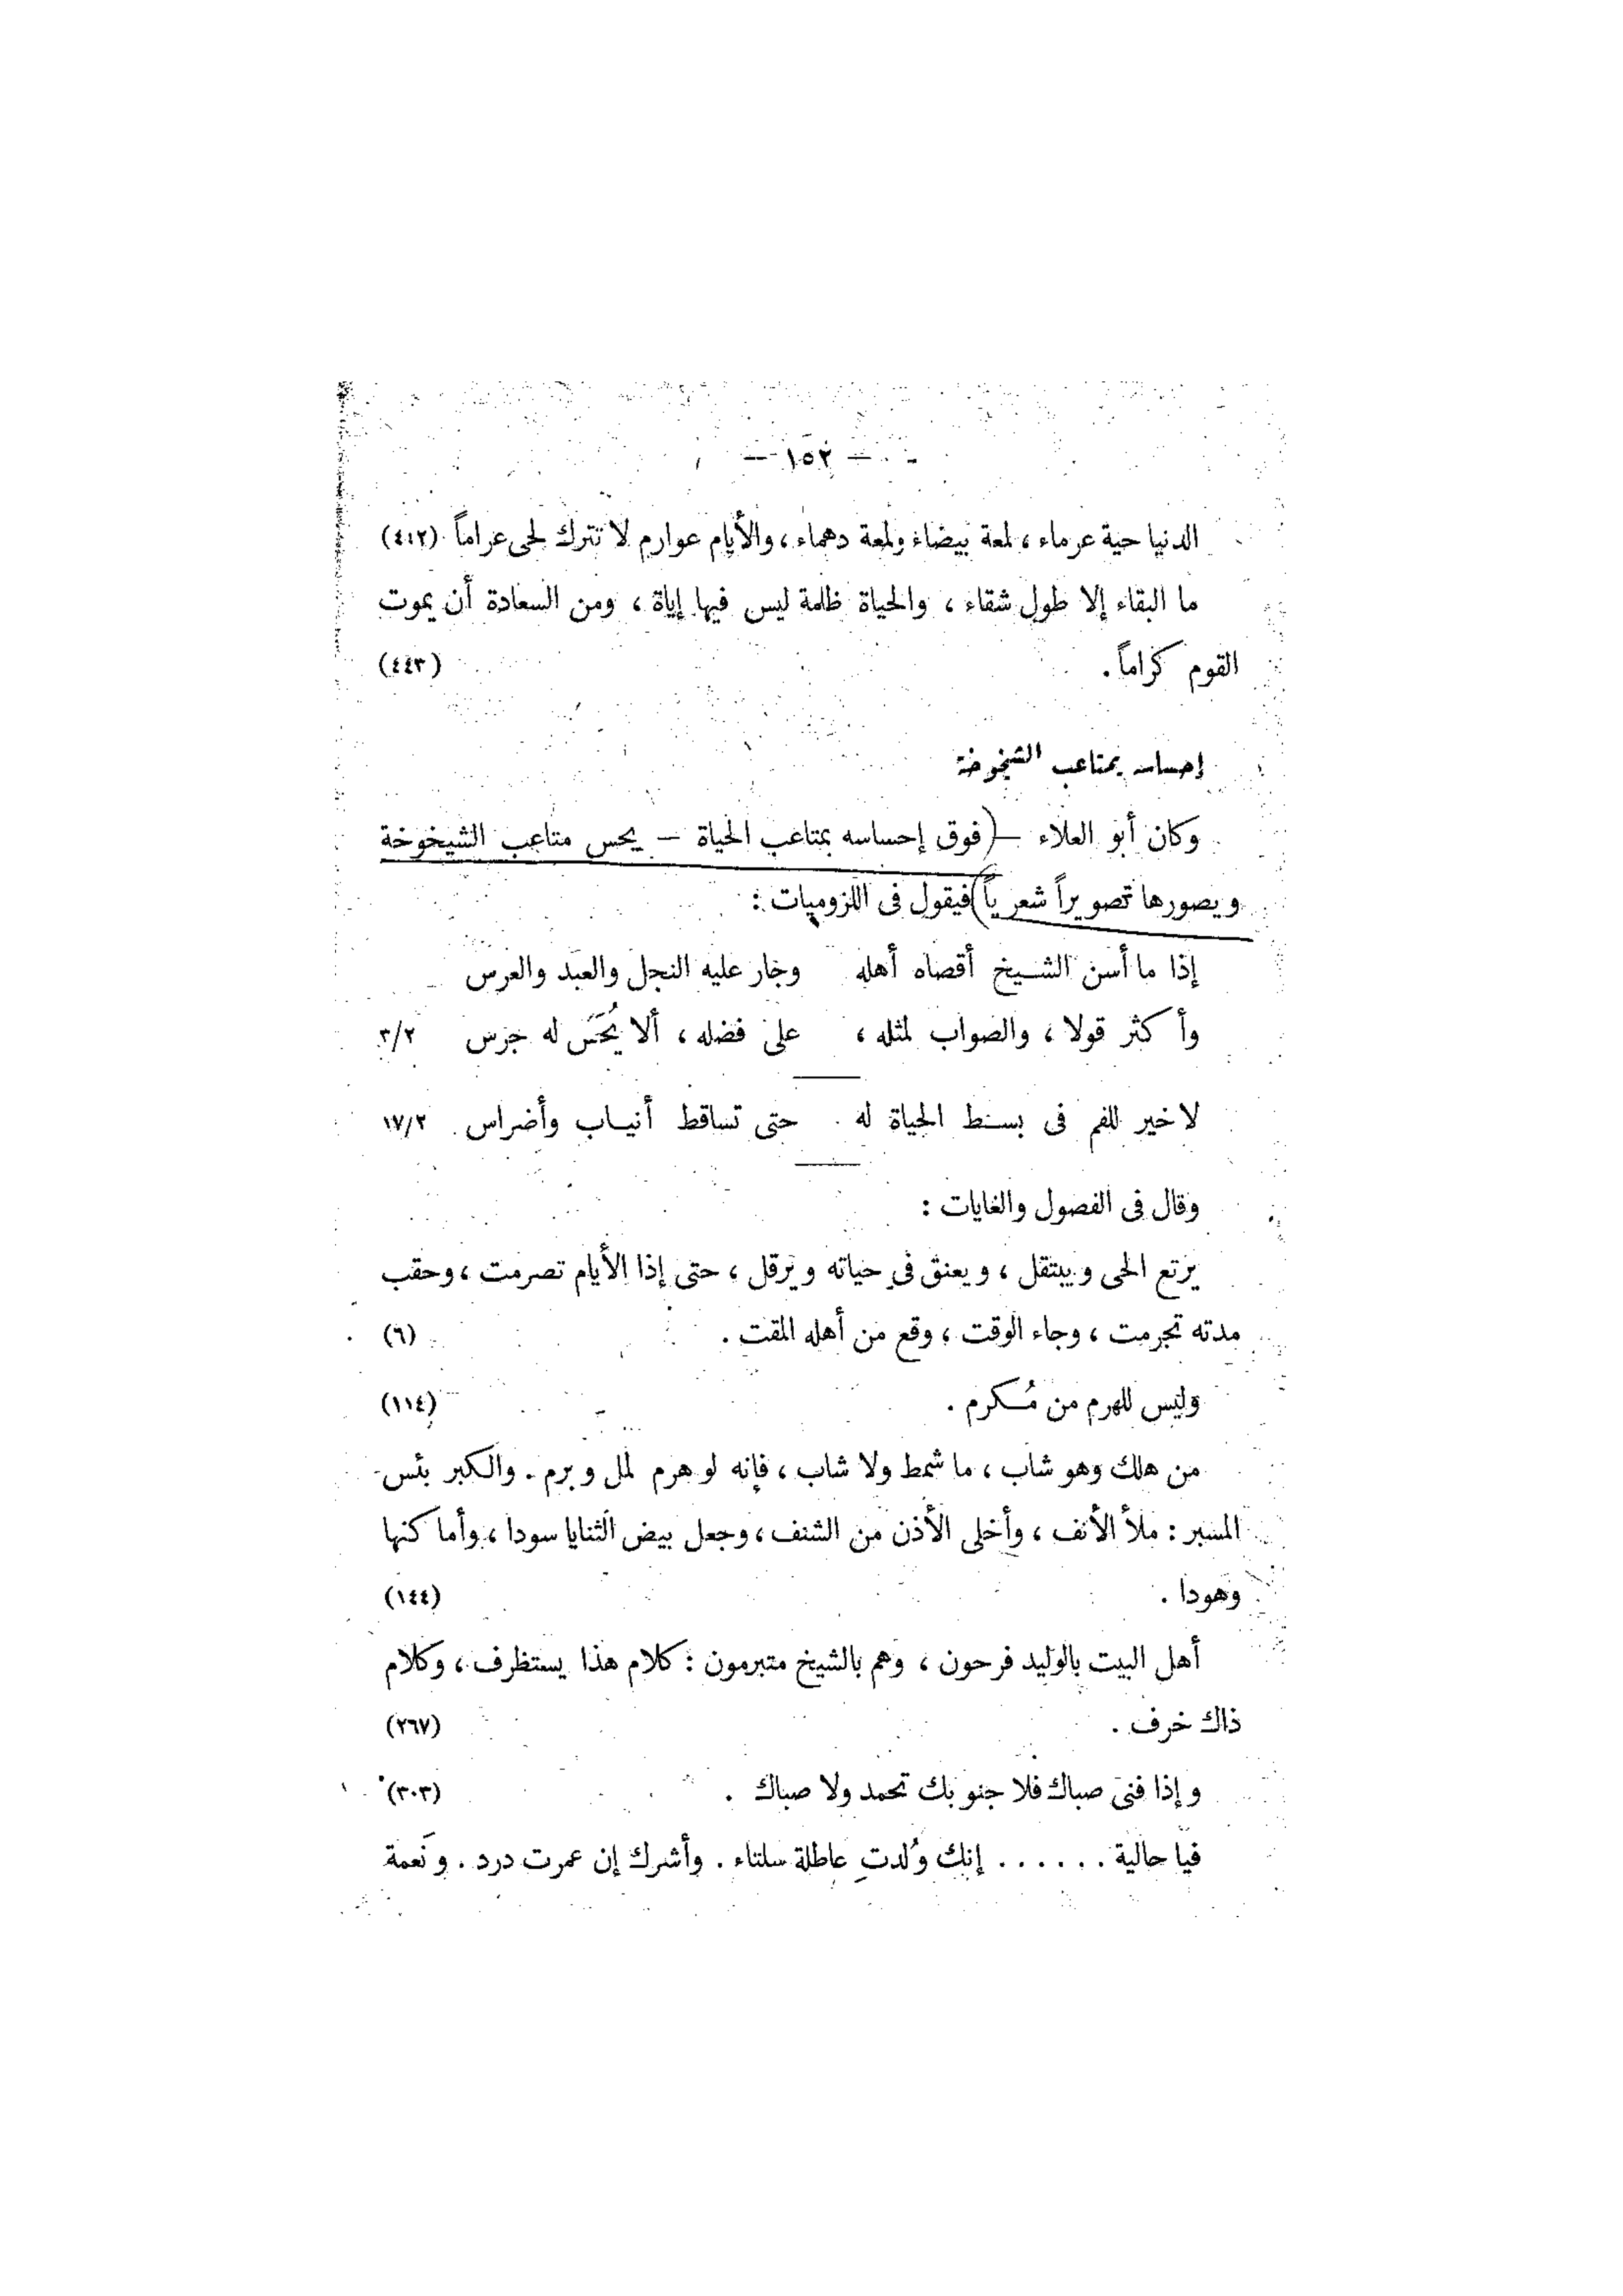 — ١٥٢ —
الدنيا حية عرماء ، لمعة بيضاء ولمعة دهماء ، والأيام عوارم لا تترك لحى عراماً (٤١٢)
ما البقاء إلا طول شقاء ، والحياة ظلمة ليس فيها إياة ، ومن السعادة أن يموت
القوم كراماً . (٤٤٣)
إحساسه بمتاعب الشيخوخة
وكان أبو العلاء — (فوق إحساسه بمتاعب الحياة — يحس متاعب الشيخوخة
ويصورها تصويراً شعرياً) فيقول فى اللزوميات :
إذا ما أسن الشيخ أقصاه أهله وجار عليه النجل والعبد والعرس
وأكثر قولا ، والصواب لمثله ، على فضله ، ألا يُحَسَّ له جرس ٣/٢
لا خير للفم فى بسط الحياة له حتى تساقط أنياب وأضراس ١٧/٢
وقال فى الفصول والغايات :
يرتع الحى ويبتقل ، ويعنق فى حياته ويرقل ، حتى إذا الأيام تصرمت ، وحقب
مدته تجرمت ، وجاء الوقت ، وقع من أهله المقت . (٦)
وليس للهرم من مُكرم . (١١٤)
من هلك وهو شاب ، ما شمط ولا شاب ، فإنه لو هرم لمل وبرم . والكبر بئس
المسبر : ملأ الأنف ، وأخلى الأذن من الشنف ، وجعل بيض الثنايا سودا ، وأماكنها
وهودا . (١٤٤)
أهل البيت بالوليد فرحون ، وهم بالشيخ متبرمون : كلام هذا يستظرف ، وكلام
ذاك خرف . (٢٦٧)
وإذا فنى صباك فلا جنوبك تحمد ولا صباك . (٣٠٣)
فيا حالية . . . . . . إنك وُلدتِ عاطلة سلتاء . وأشرك إن عمرت درد . ونَعمة